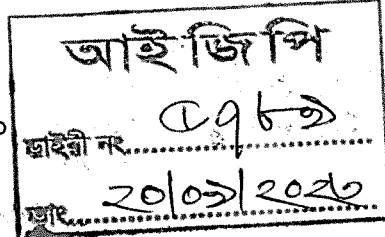 আই জি পি
ডাইরী নং..........৫৭৮৯..........
তাং.....২০/০৯/২০২৩.....